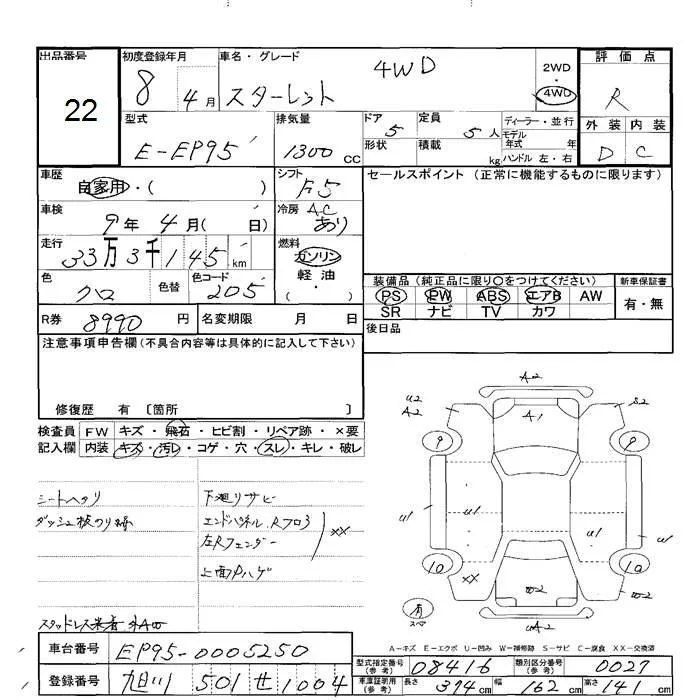 出品番号 初度登録年月 車名・グレード 評価点
22 8 4月 スターレット 4WD 2WD 4WD R
型式 排気量 ドア 定員 ディーラー・並行 外装 内装
E-EP95 1300cc 5 5人 モデル年式 年式 D C
形状 積載 kg ハンドル 左・右
車歴 シフト セールスポイント (正常に機能するものに限ります)
自家用・( ) F5
車検 冷房 AC
9年 4月( 日) あり
走行 燃料
33万3千145km ガソリン
色 色替 色コード 軽油
クロ 205 ( ・ )
装備品 (純正品に限り○をつけてください) 新車保証書
PS PW ABS エアB AW 有・無
SR ナビ TV カワ
R券 8990円 名変期限 月 日 後日品
注意事項申告欄(不具合内容等は具体的に記入して下さい)
修復歴 有 〔箇所 〕
検査員 FW キズ・飛石・ヒビ割・リペア跡・×要
記入欄 内装 キズ・汚レ・コゲ・穴・スレ・キレ・破レ
シートヘタリ 下廻りサビ
ダッシュ板のり跡 エンドパネル、Rフロ3
左Rフェンダー XX
上面Pハゲ
A2
U2 A2 A1 S2
9 9
U1 U1 U1
10 XX 10
W2 W2
有 スペア
A2
A-キズ E-エクボ U-凹み W-補修跡 S-サビ C-腐食 XX-交換済
車台番号 EP95-0005250
型式指定番号(参考) 08416 類別区分番号(参考) 0027
登録番号 旭川 501 せ 1004
車庫証明用(参考) 長さ 374cm 幅 162cm 高さ 141cm